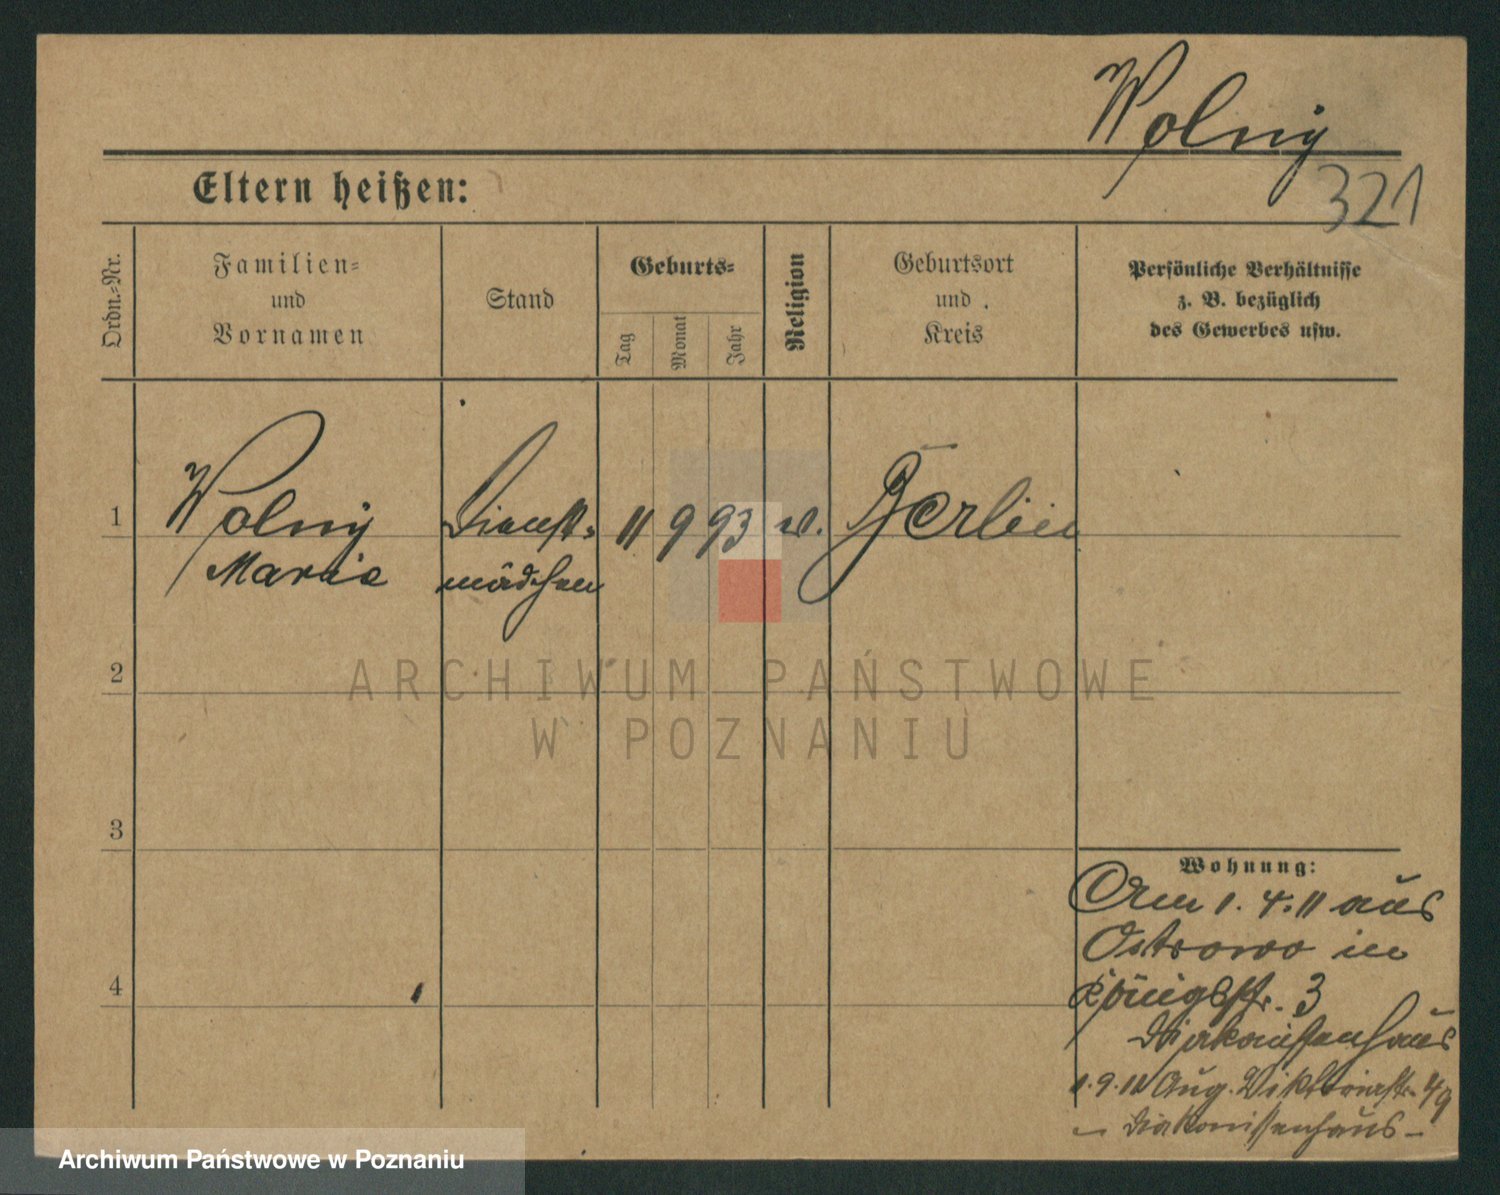 Wolny
321
Eltern heißen:
Ordn.-Nr.
Familien-
und
Vornamen
Stand
Geburts-
Tag
Monat
Jahr
Religion
Geburtsort
und
Kreis
Persönliche Verhältnisse
z. B. bezüglich
des Gewerbes usw.
1
Wolny
Marie
Dienst-
mädchen
11 9 93
Berlin
2
ARCHIWUM PAŃSTWOWE
W POZNANIU
3
4
Wohnung:
Am 1. 4. 11 aus
Ostrowo in
Königstr. 3
Diakonissenhaus
Aug. Viktoriastr. 49
– Diakonissenhaus –
Archiwum Państwowe w Poznaniu